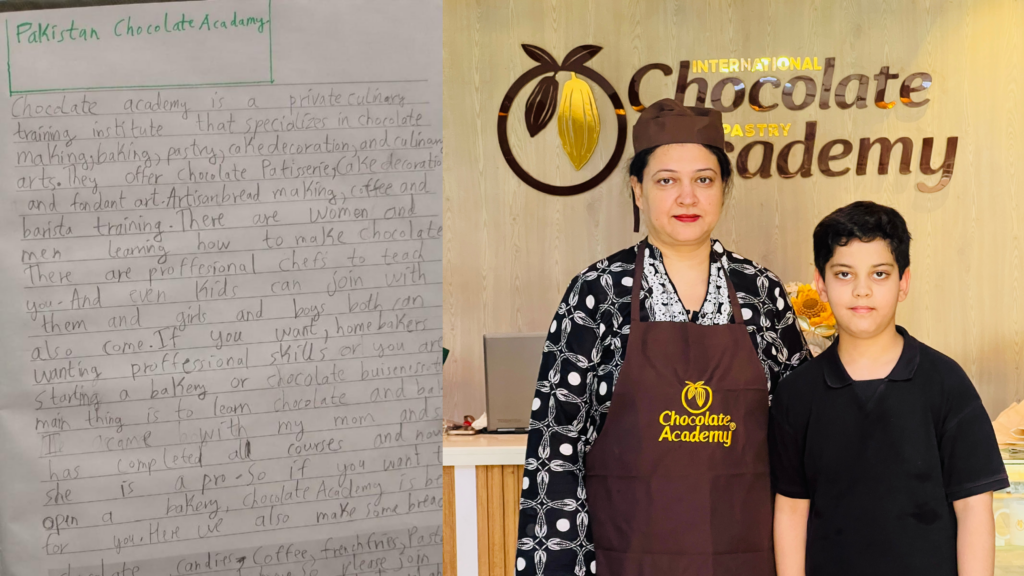 Pakistan Chocolate Acadamy.
Chocolate academy is a private culinary
training institute that specializes in chocolate
making, baking, pastry, cake decoration, and culinary
arts. They offer Chocolate Patisserie, Cake decoratio
and fondant art. Artisan bread making, coffee and
barista training. There are women and
men learning how to make chocolate
There are proffessional chefs to teach
you. And even kids can join with
them and girls and boys both can
also come. If you want, home bakers
wanting proffessional skills or you are
starting a bakery or chocolate
main thing is to learn chocolate and ba
I came with my mom and s
has completed all courses and now
she is a pro. So if you want t
open a bakery, chocolate Academy is be
for you. Here we also make some bread
candies, Coffee, Past
please join
INTERNATIONAL
Chocolate
PASTRY
Academy
Chocolate®
Academy